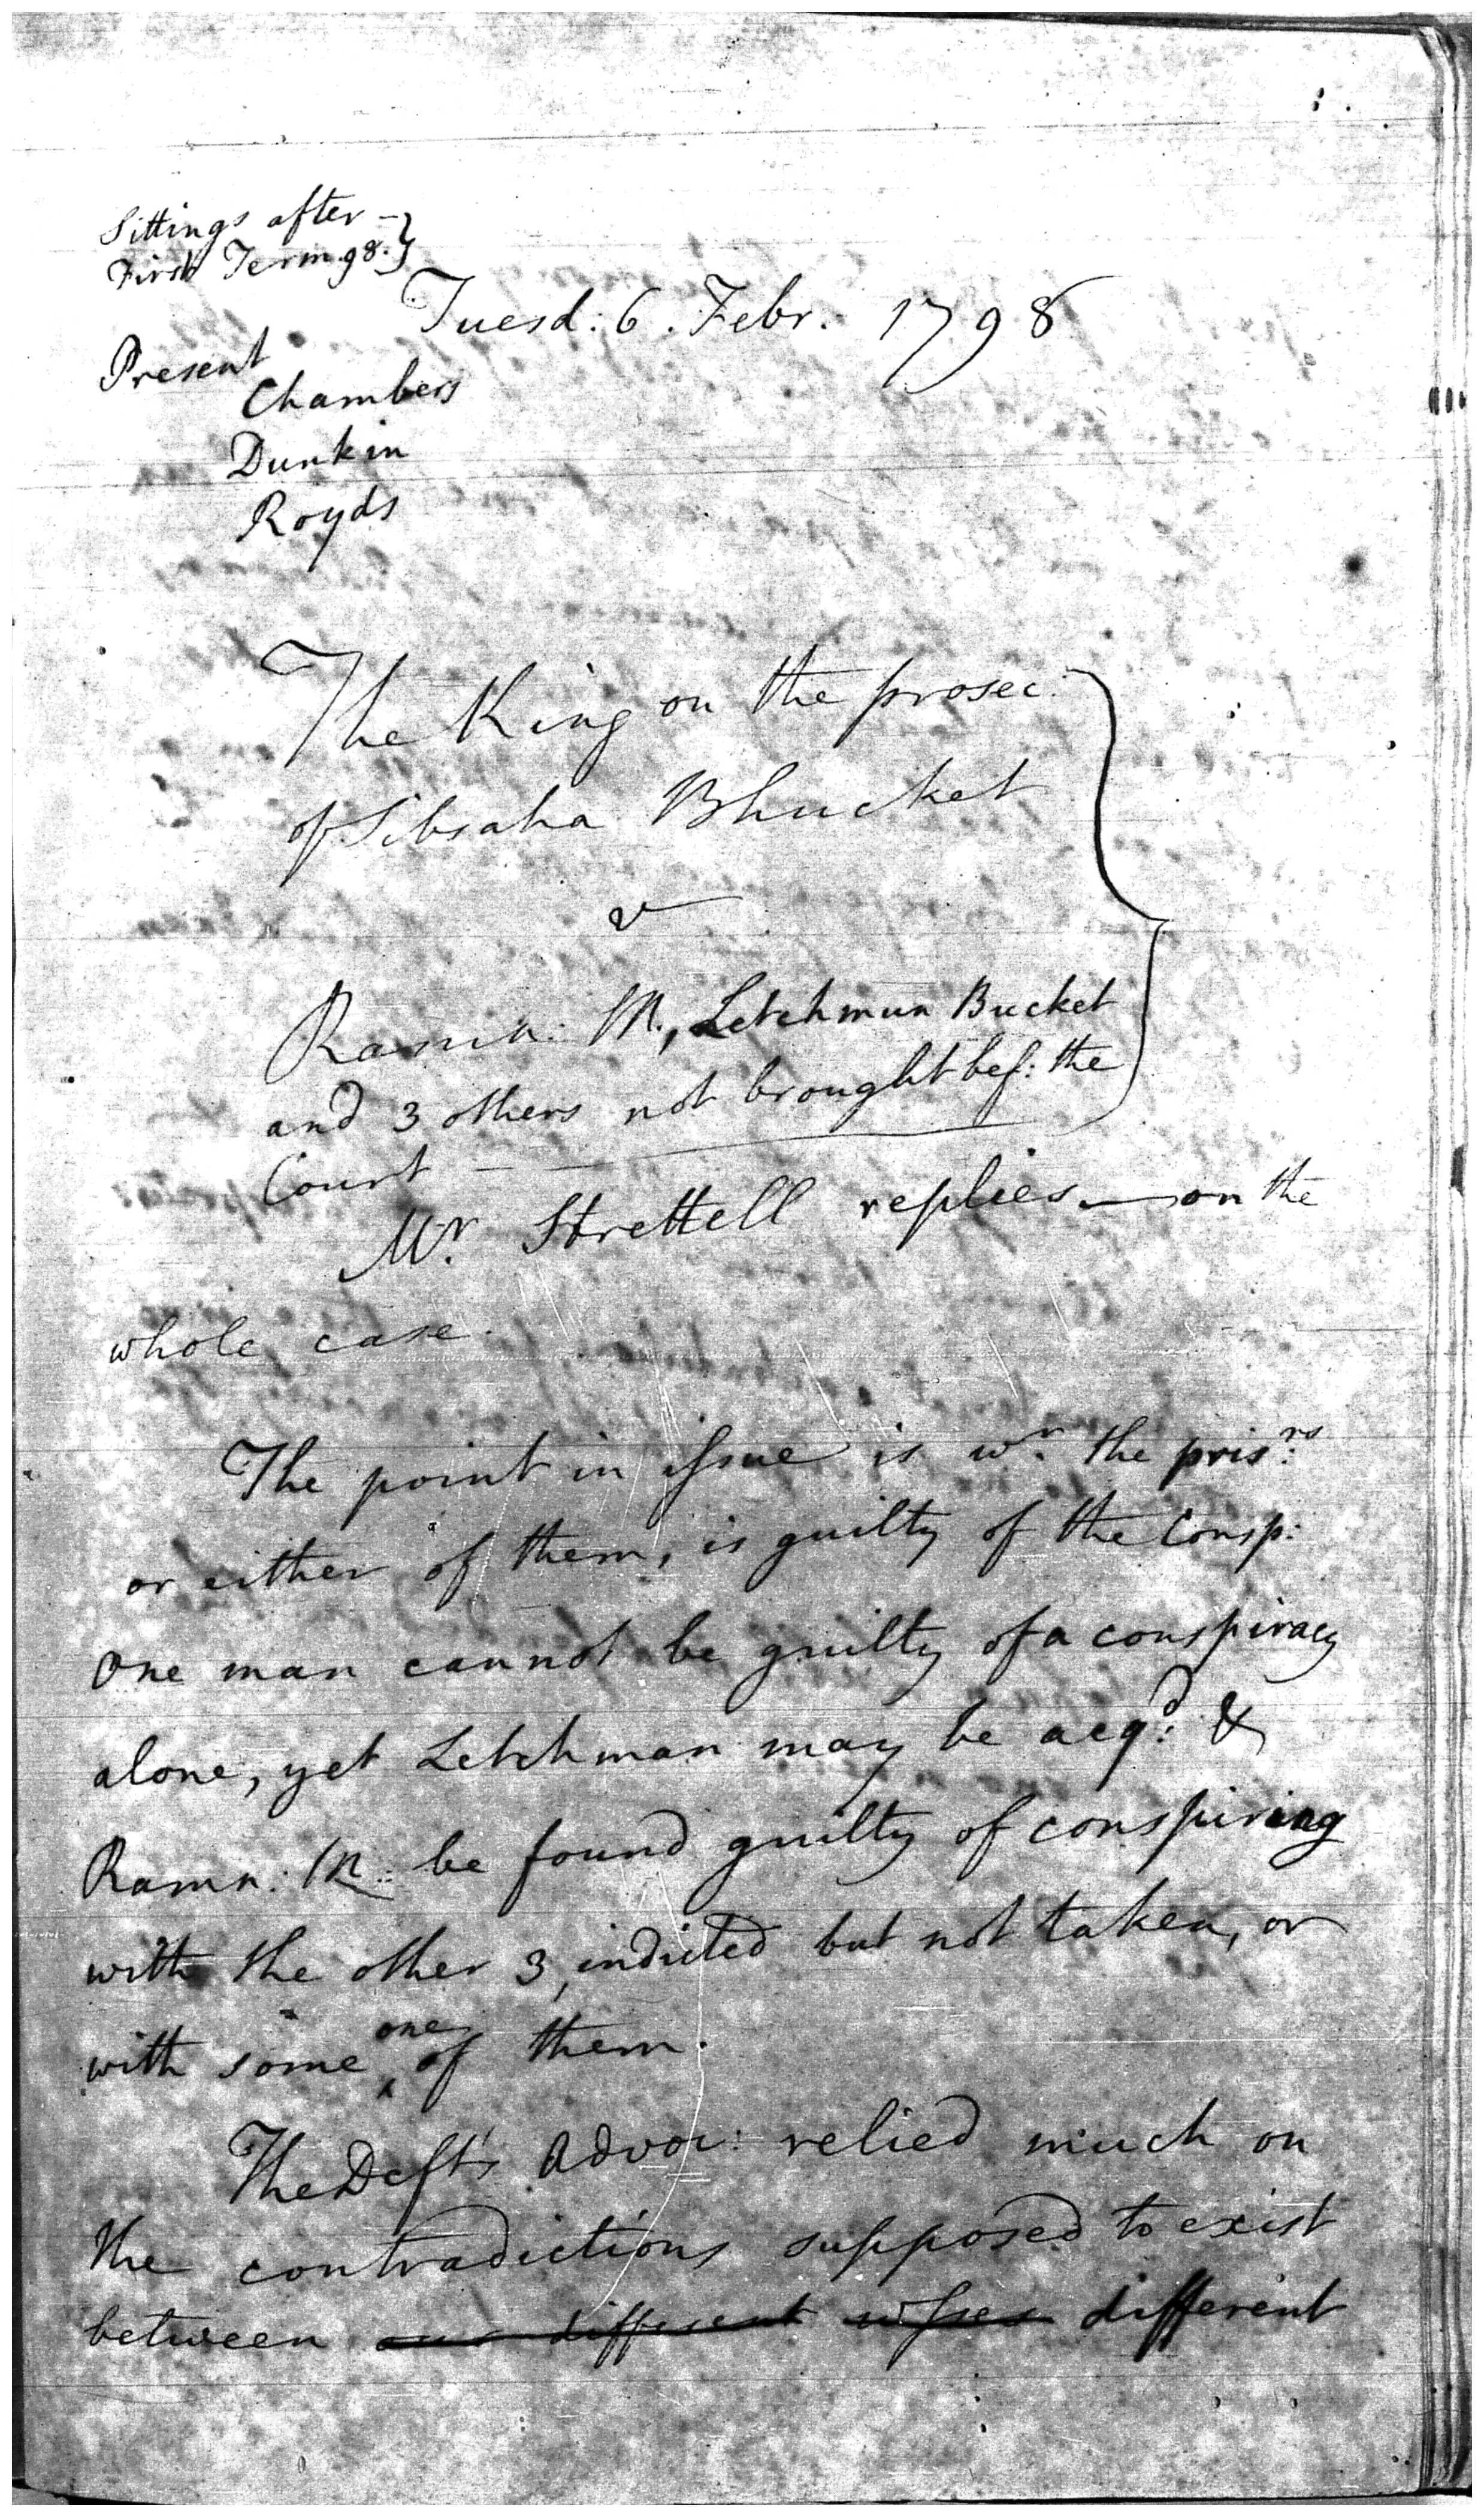 Sittings after –
First Term. 98.
Tuesd: 6. Febr. 1798
Present
Chambers
Dunkin
Royds
The King on the prosec:
of Sibsaha Bhucket
v
Ramn: M., Letchmun Bucket
and 3 others not brought bef: the
Court
Mr. Strettell replies — on the
whole case.
The point in issue is wr. the prisrs.
or either of them, is guilty of the Consp:
One man cannot be guilty of a conspiracy
alone, yet Letchman may be acqd. &
Ramn: M: be found guilty of conspiring
with the other 3, indicted but not taken, or
with some one of them.
The Deft's Advoc: relied much on
the contradictions supposed to exist
between our different wsses different